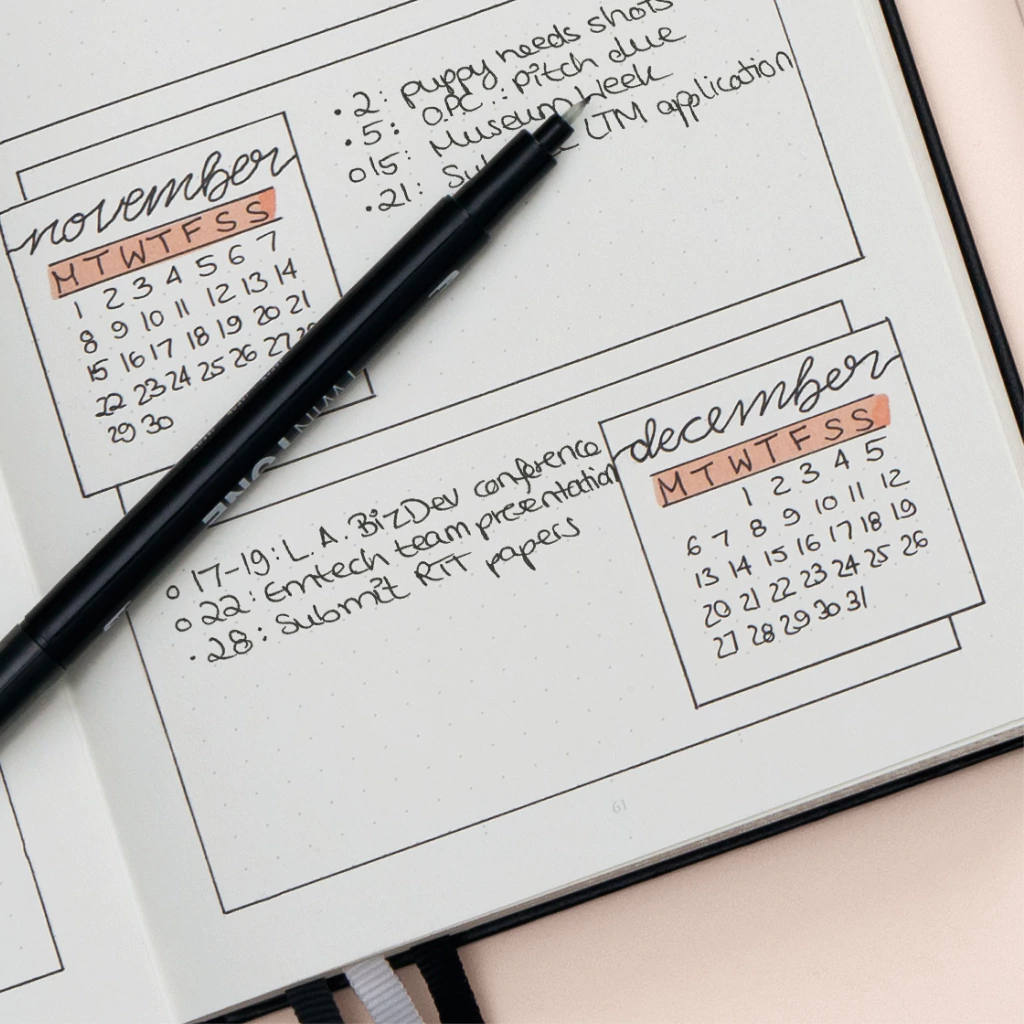 november
M T W T F S S
1 2 3 4 5 6 7
8 9 10 11 12 13 14
15 16 17 18 19 20 21
22 23 24 25 26 27
29 30
• 2: puppy needs shots
• 5: O.P.C.: pitch due
o 15: Museum Week
• 21: LTM application
TWIN TONE
december
M T W T F S S
1 2 3 4 5
6 7 8 9 10 11 12
13 14 15 16 17 18 19
20 21 22 23 24 25 26
27 28 29 30 31
o 17-19: L.A. BizDev conference
o 22: Emtech team presentation
• 28: Submit RIT papers
61